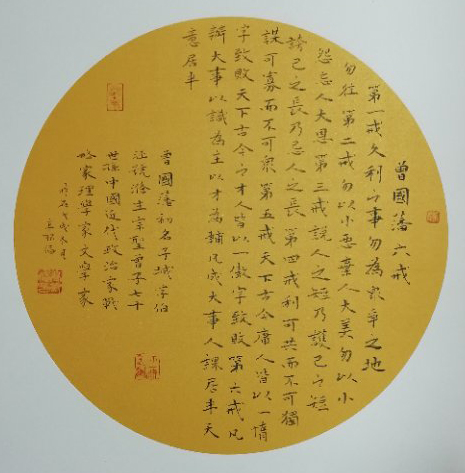 曾國藩六戒
第一戒久利之事勿為眾爭之地
勿往第二戒勿以小惡棄人大美勿以小
怨忘人大恩第三戒說人之短乃護己之短
誇己之長乃忌人之長第四戒利可共而不可獨
謀可寡而不可衆第五戒天下古今庸人皆以一惰
字致敗天下古今之才人皆以一傲字致敗第六戒凡
辦大事以識為主以才為輔凡成大事人謀居半天
意居半
曾國藩初名子城字伯
涵號滌生宗聖曾子七十
世孫中國近代政治家戰
略家理學家文學家